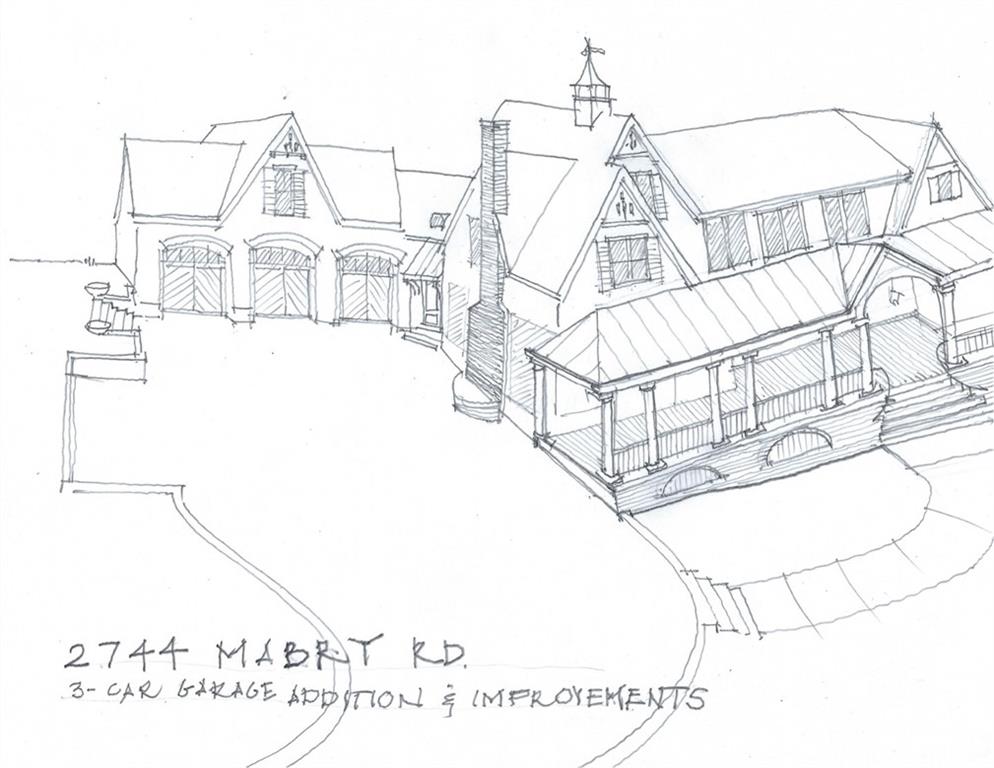 2744 MABRY RD.
3-CAR GARAGE ADDITION & IMPROVEMENTS